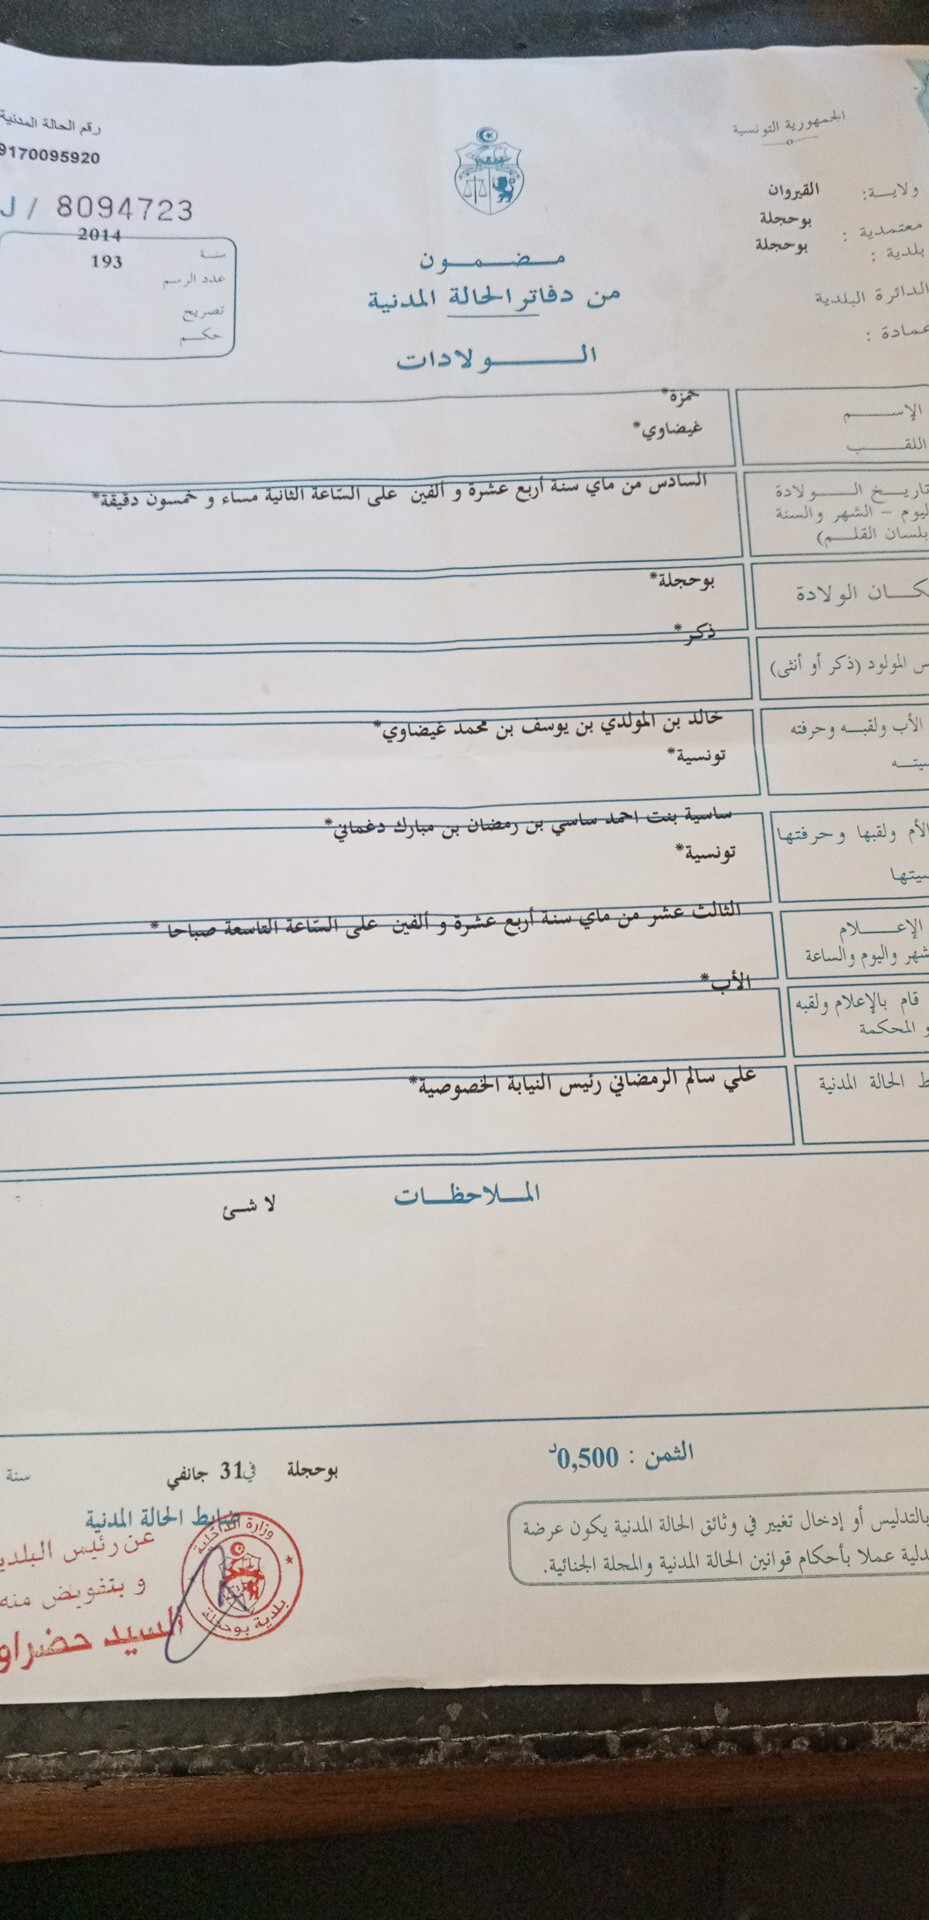 الجمهورية التونسية
ولاية: القيروان
معتمدية : بوحجلة
بلدية : بوحجلة
الدائرة البلدية
عمادة :
رقم الحالة المدنية
9170095920
J / 8094723
سنة 2014
عدد الرسم 193
تصريح
حكم
مضمون
من دفاتر الحالة المدنية
الولادات
الإسم حمزة*
اللقب غيضاوي*
تاريخ الولادة السادس من ماي سنة أربع عشرة و ألفين على السّاعة الثانية مساء و خمسون دقيقة*
ليوم - الشهر والسنة
بلسان القلم)
كان الولادة بوحجلة*
س المولود (ذكر أو أنثى) ذكر*
الأب ولقبه وحرفته خالد بن المولدي بن يوسف بن محمد غيضاوي*
سيته تونسية*
الأم ولقبها وحرفتها ساسية بنت احمد ساسي بن رمضان بن مبارك دغماني*
سيتها تونسية*
الإعلام الثالث عشر من ماي سنة أربع عشرة و ألفين على السّاعة التاسعة صباحا *
شهر واليوم والساعة
قام بالإعلام ولقبه الأب*
و المحكمة
ط الحالة المدنية علي سالم الرمضاني رئيس النيابة الخصوصية*
الملاحظات
لا شئ
الثمن : 0,500د
بالتدليس أو إدخال تغيير في وثائق الحالة المدنية يكون عرضة
دلية عملا بأحكام قوانين الحالة المدنية والمجلة الجنائية.
بوحجلة في 31 جانفي سنة
ضابط الحالة المدنية
عن رئيس البلدي
و بتفويض منه
السيد حضراو
وزارة الداخلية
بلدية بوحجلة